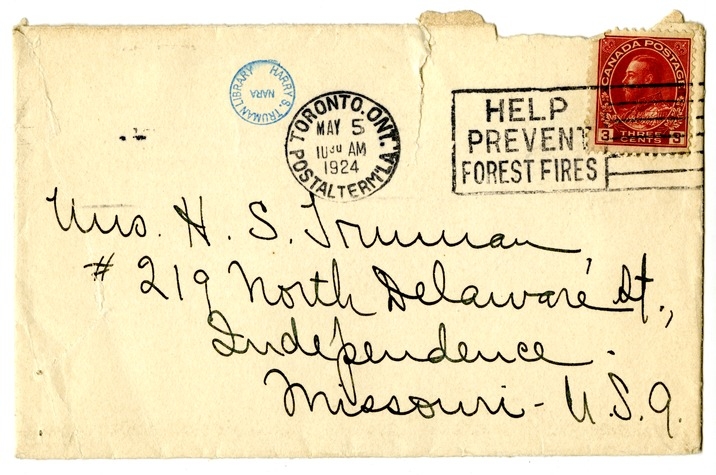 HARRY S. TRUMAN LIBRARY
NARA
TORONTO, ONT.
MAY 5
10 30 AM
1924
POSTAL TERM'L A.
HELP
PREVENT
FOREST FIRES
CANADA POSTAGE
3 THREE 3
CENTS
Mrs. H. S. Truman,
# 219 North Delaware St.,
Independence.
Missouri - U.S.A.